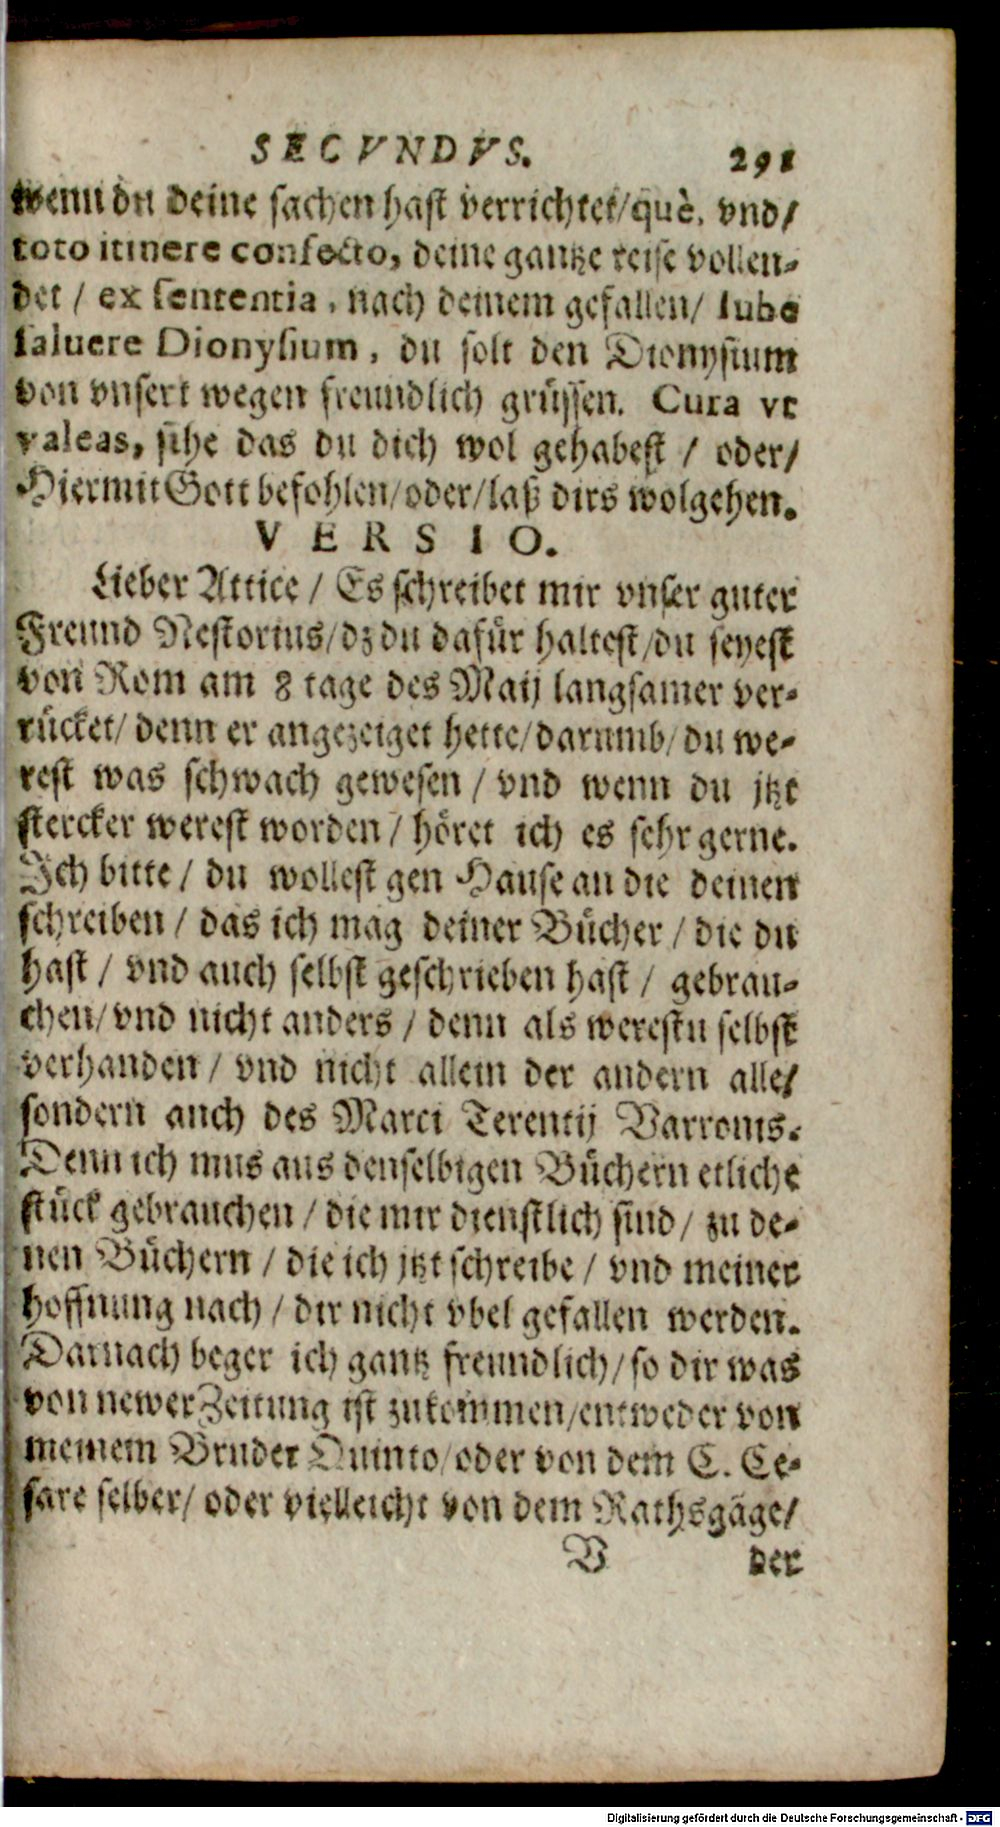 SECVNDVS. 291
wenn du deine sachen hast verrichtet/què. vnd/
toto itinere confecto, deine gantze reise vollen-
det / ex sententia, nach deinem gefallen/ Iube
saluere Dionysium, du solt den Dionysium
von vnsert wegen freundlich grüssen. Cura vt
valeas, sihe das du dich wol gehabest / oder/
Hiermit Gott befohlen/oder/laß dirs wolgehen.
VERSIO.
Lieber Attice / Es schreibet mir vnser guter
Freund Nestorius/dz du dafür haltest/du seyest
von Rom am 8 tage des Maij langsamer ver-
rücket/ denn er angezeiget hette/darumb/du we-
rest was schwach gewesen / vnd wenn du jtzt
stercker werest worden / höret ich es sehr gerne.
Ich bitte / du wollest gen Hause an die deinen
schreiben / das ich mag deiner Bücher / die du
hast / vnd auch selbst geschrieben hast / gebrau-
chen/ vnd nicht anders / denn als werestu selbst
verhanden / vnd nicht allein der andern alle/
sondern auch des Marci Terentij Varronis.
Denn ich mus aus denselbigen Büchern etliche
stück gebrauchen / die mir dienstlich sind / zu de-
nen Büchern / die ich jtzt schreibe / vnd meiner
hoffnung nach / dir nicht vbel gefallen werden.
Darnach beger ich gantz freundlich/so dir was
von newer Zeitung ist zukommen/entweder von
meinem Bruder Quinto/oder von dem C. Ce-
sare selber/ oder vielleicht von dem Rathsgäge/
V der
Digitalisierung gefördert durch die Deutsche Forschungsgemeinschaft - DFG